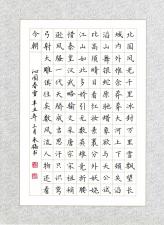 北国风光千里冰封万里雪飘望长
城内外惟余莽莽大河上下顿失滔
滔山舞银蛇原驰蜡象欲与天公试
比高须晴日看红装素裹分外妖娆
江山如此多娇引无数英雄竞折腰
惜秦皇汉武略输文采唐宗宋祖稍
逊风骚一代天骄成吉思汗只识弯
弓射大雕俱往矣数风流人物还看
今朝
沁园春雪 辛丑年三月